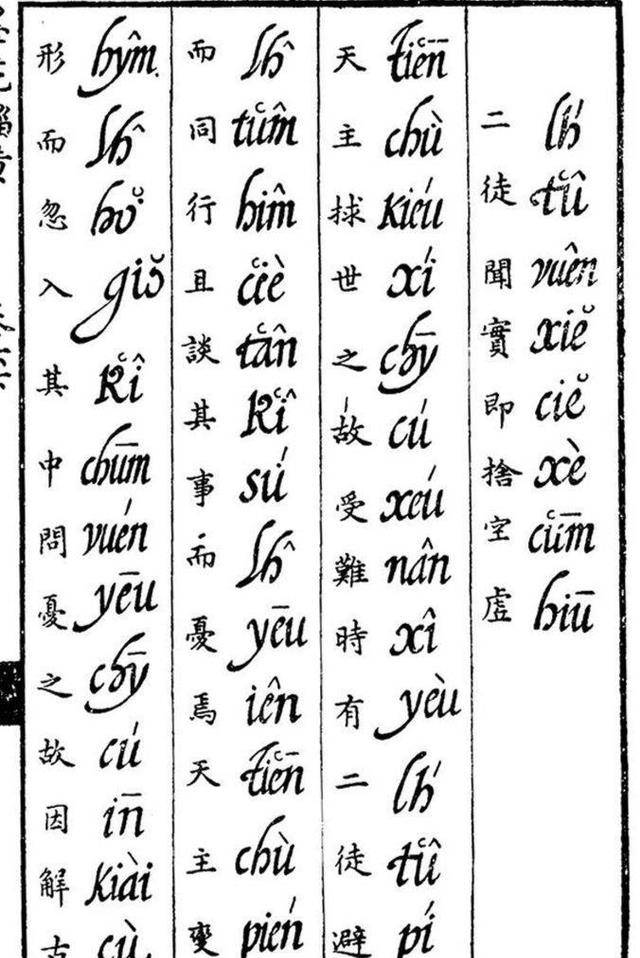 二徒聞實即捨空虛
lh́ t͑û vuên xiĕ ciĕ xè c͑ūm hiū
天主捄世之故受難時有二徒避
t͑iēn chù kiéu xí chȳ cú xéu nân xî yèu lh́ t͑û pí
而同行且談其事而憂焉天主變
lĥ t͑ûm hîm c͑iè t͑ân k͑î sú lĥ yēu iên t͑iēn chù pién
形而忽入其中問憂之故因解古
hŷm lĥ hŏ giŏ k͑î chūm vuén yēu chȳ cú īn kiài cù